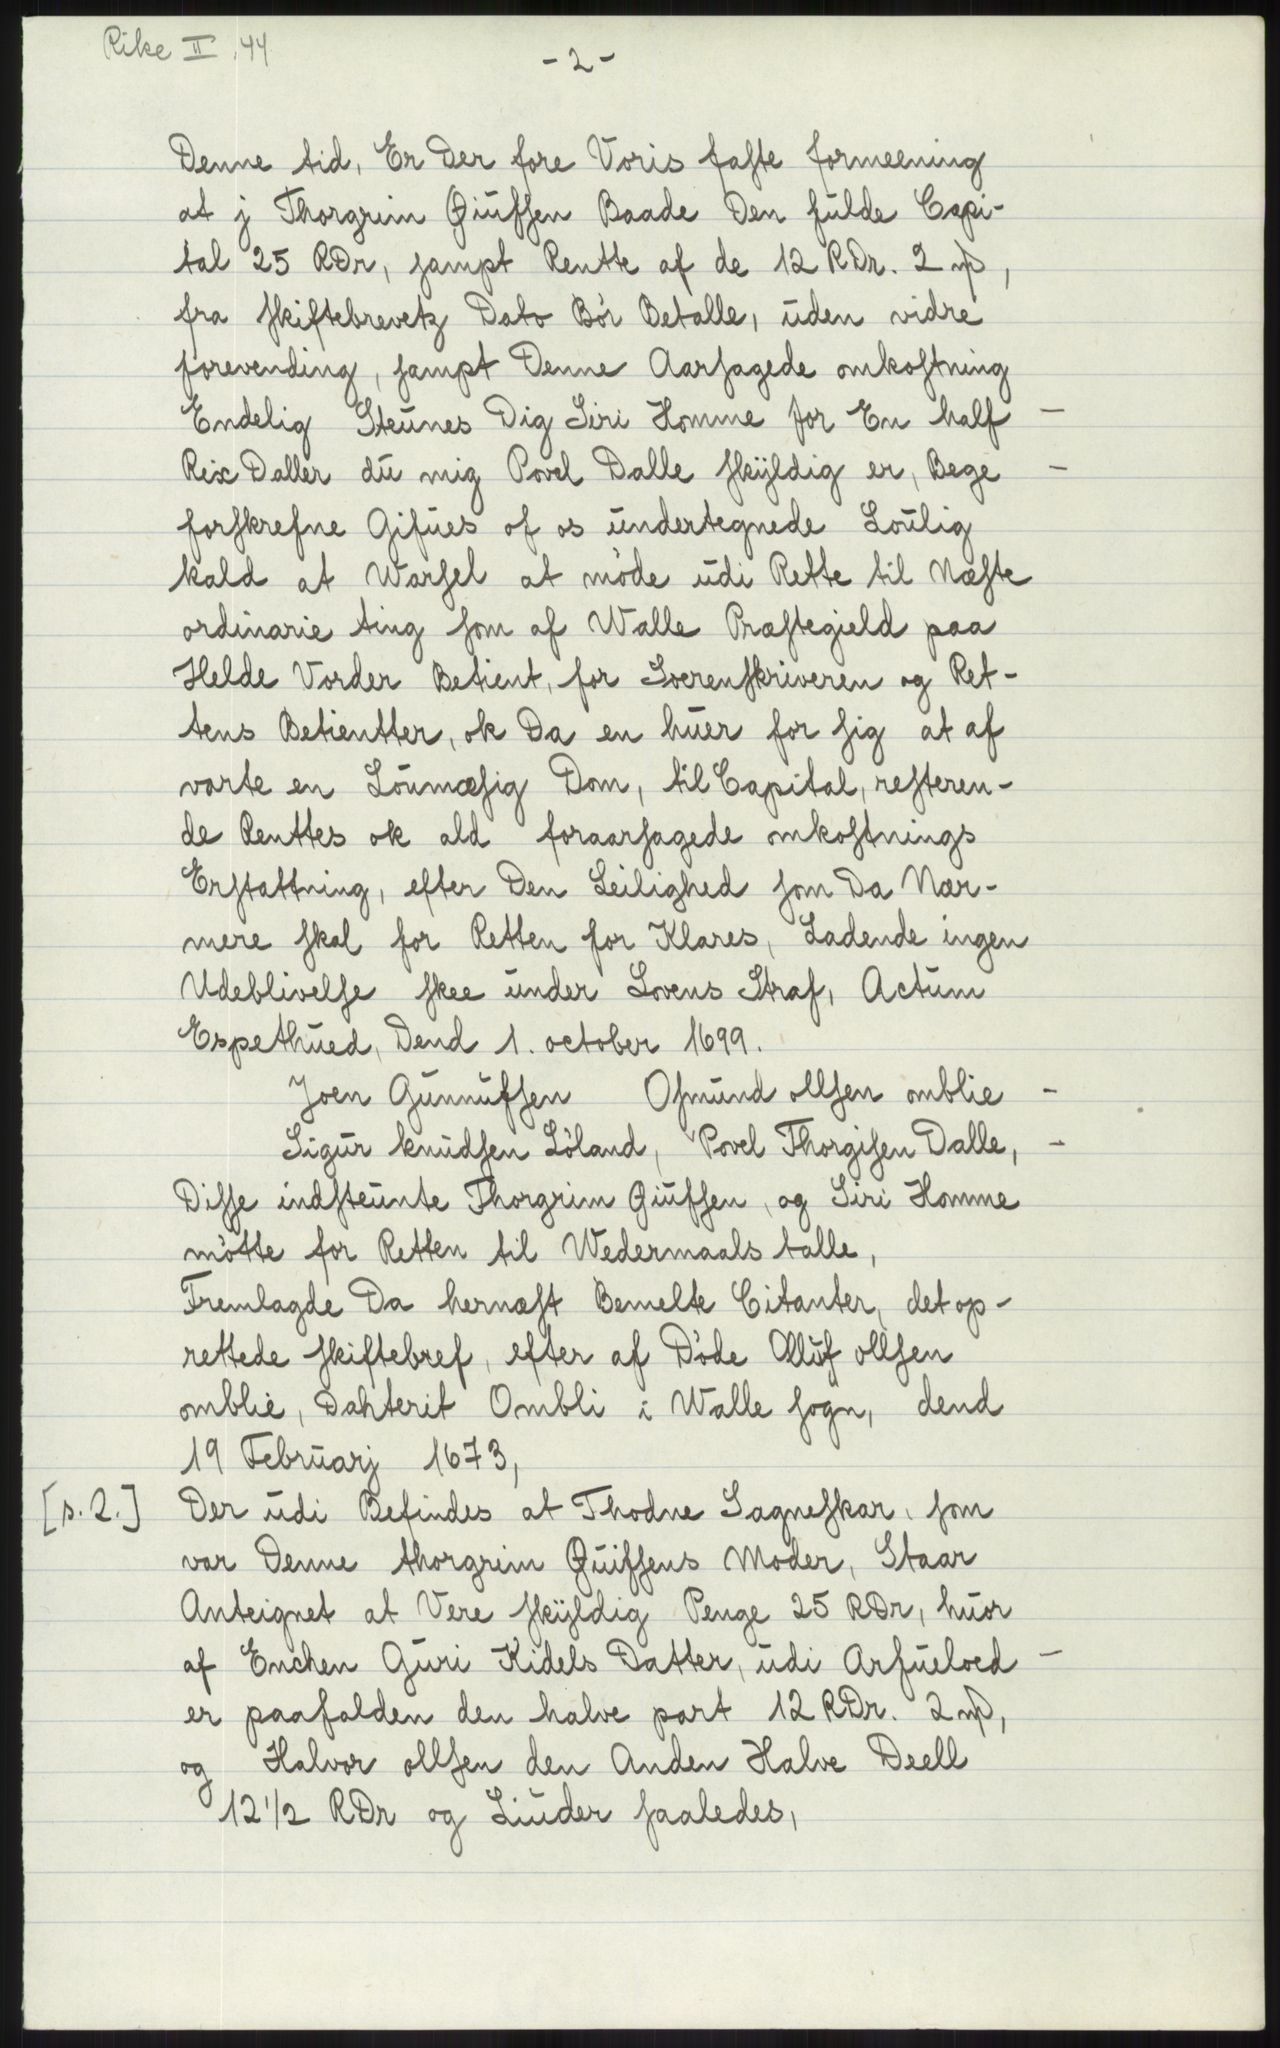 Rike II. 44
- 2 -
Denne tid, Er Der fore Voris faste formeening
at j Thorgrim Giufsen Baade Den fulde Capi-
tal 25 RDr, sampt Rentte af de 12 RDr. 2 mþ,
fra skiftebrevetz Dato Bör Betalle, uden vidre
forevending, sampt Denne Aarsagede omkostning
Endelig Steunes Dig Siri Homme for En half –
Rix Daller du mig Povel Dalle skÿldig er, Bege –
forskrefne Gifues af os undertegnede Loulig
kald at Warsel at möde udi Rette til Næste
ordinarie ting som af Walle Præstegield paa
Helde Vorder Betient, for Sorenskriveren og Ret-
tens Betientter, ok Da en huer for sig at af
varte en Loumæsig Dom, til Capital, resteren-
de Renttes ok ald foraarsagede omkostnings
Erstattning, efter Den Leilighed som Da Nær-
mere skal for Retten for Klares, Ladende ingen
Udeblivelse skee under Lovens Straf, Actum
Espethued, Dend 1. october 1699.
Joen Gunnufsen Osmund ollsen omblie –
Sigur knudsen Löland, Povel Thorgisen Dalle, –
Disse indsteunte Thorgrim Giufsen, og Siri Homme
mötte for Retten til Wedermaals talle,
Fremlagde Da hernæst Bemelte Citanter, det op-
rettede skiftebref, efter af Döde Olluf ollsen
omblie, Dahterit Ombli i Walle sogn, dend
19 Februarj 1673,
[s. 2.] Der udi Befindes at Thodne Sagneskar, som
var Denne thorgrim Guifsens Moder, Staar
Anteignet at Vere skÿldig Penge 25 RDr, huor
af Enchen Guri Kidels Datter, udi Arfueloed –
er paafalden den halve part 12 RDr. 2 mþ,
og Halvor ollsen den Anden Halve Deell
12 1/2 RDr og Liuder saaledes,